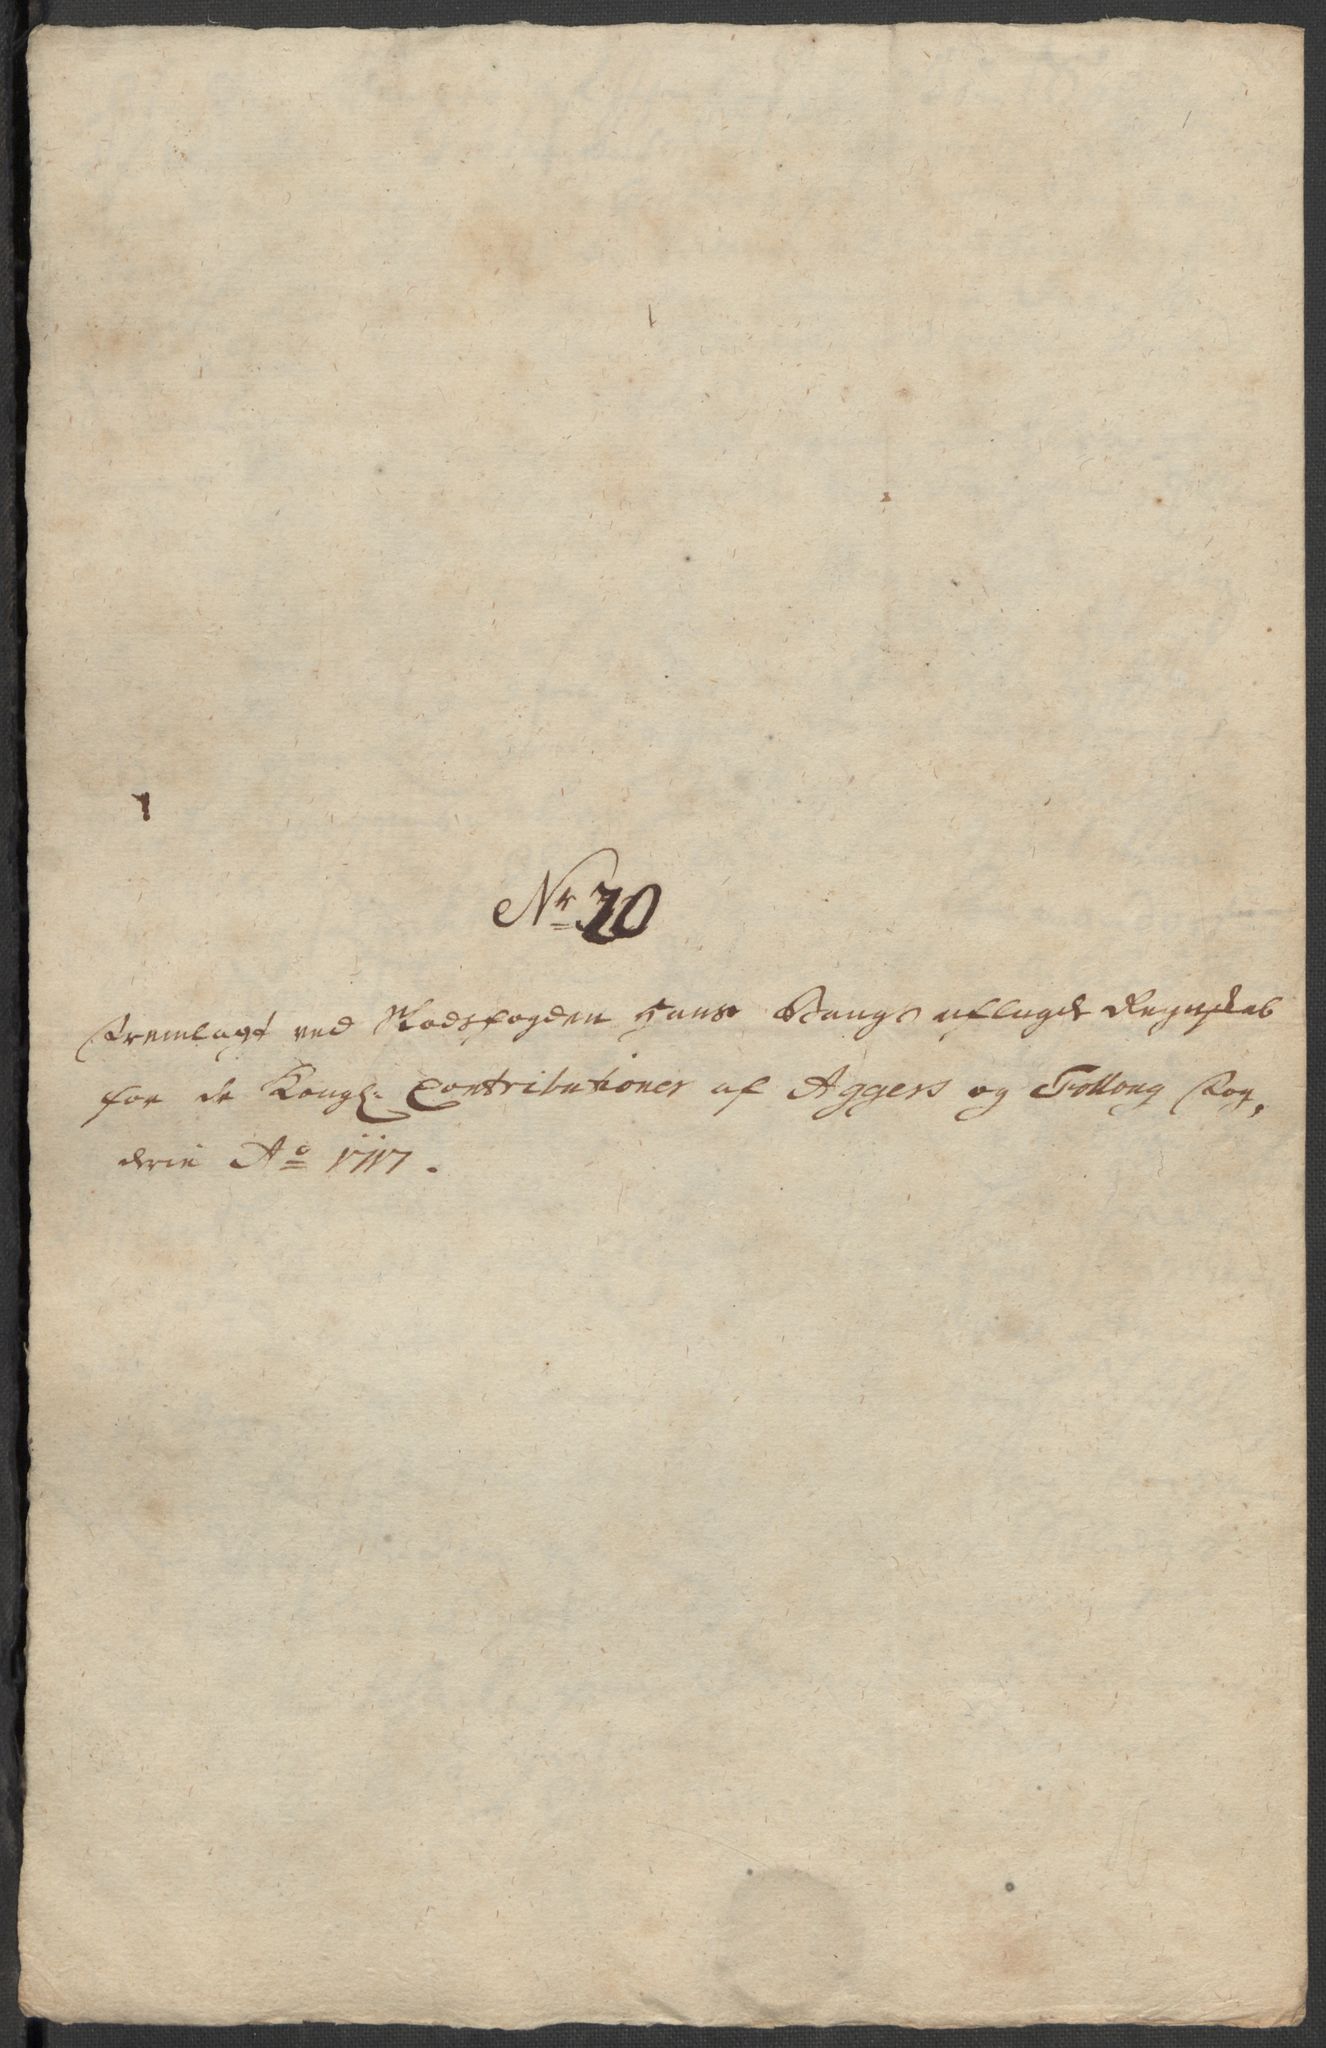 Nr. 20
Fremlagt ved Stadsfogden Hans Bangs aflagde Regnskab
for de Kongl. Contributioner af Aggers og Follong Fog,
derie Ao 1717.